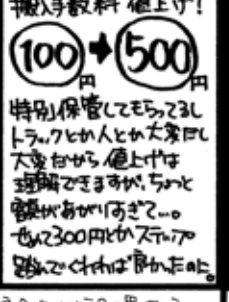 搬入手数料 値上げ!
100円➡500円
特別保管してもらってるし
トラックとか人とか大変だし
大変だから値上げは
理解できますが、ちょっと
額があがりすぎて…。
せめて300円とかステップ
踏んでくれれば良かったのに。